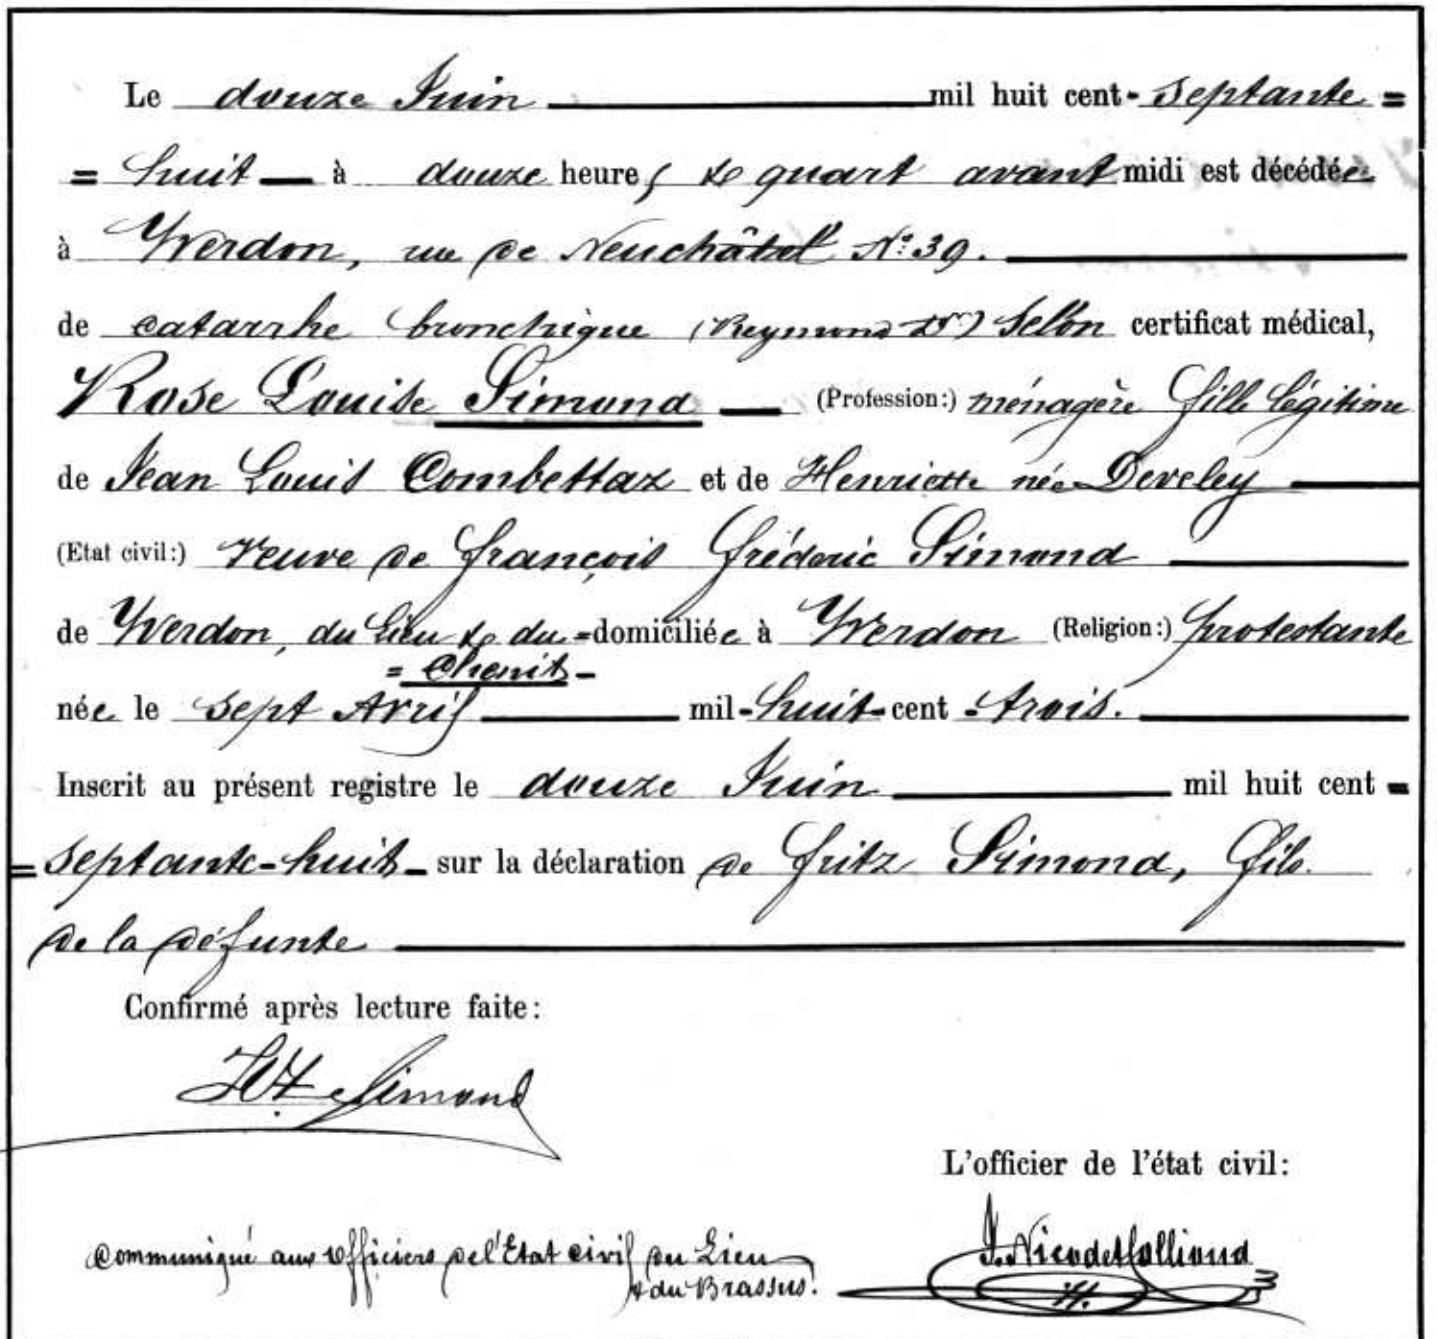 Le douze Juin mil huit cent-septante=
=huit — à douze heures & quart avant midi est décédée
à Yverdon, rue de Neuchâtel No: 39.
de catarrhe bronchique (Reymond Dr) Selon certificat médical,
Rose Louise Simond — (Profession:) ménagère fille légitime
de Jean Louis Combettaz et de Henriette née Develey
(Etat civil:) Veuve de françois frédéric Simond
de Yverdon, du Lieu & du = domiciliée à Yverdon (Religion:) protestante
= Chenit -
née le sept Avril mil-huit-cent-trois.
Inscrit au présent registre le douze Juin mil huit cent=
=septante-huit- sur la déclaration de fritz Simond, fils.
de la défunte
Confirmé après lecture faite:
Simond
L'officier de l'état civil:
Communiqué aux officiers de l'Etat civil du Lieu
& du Brassus.